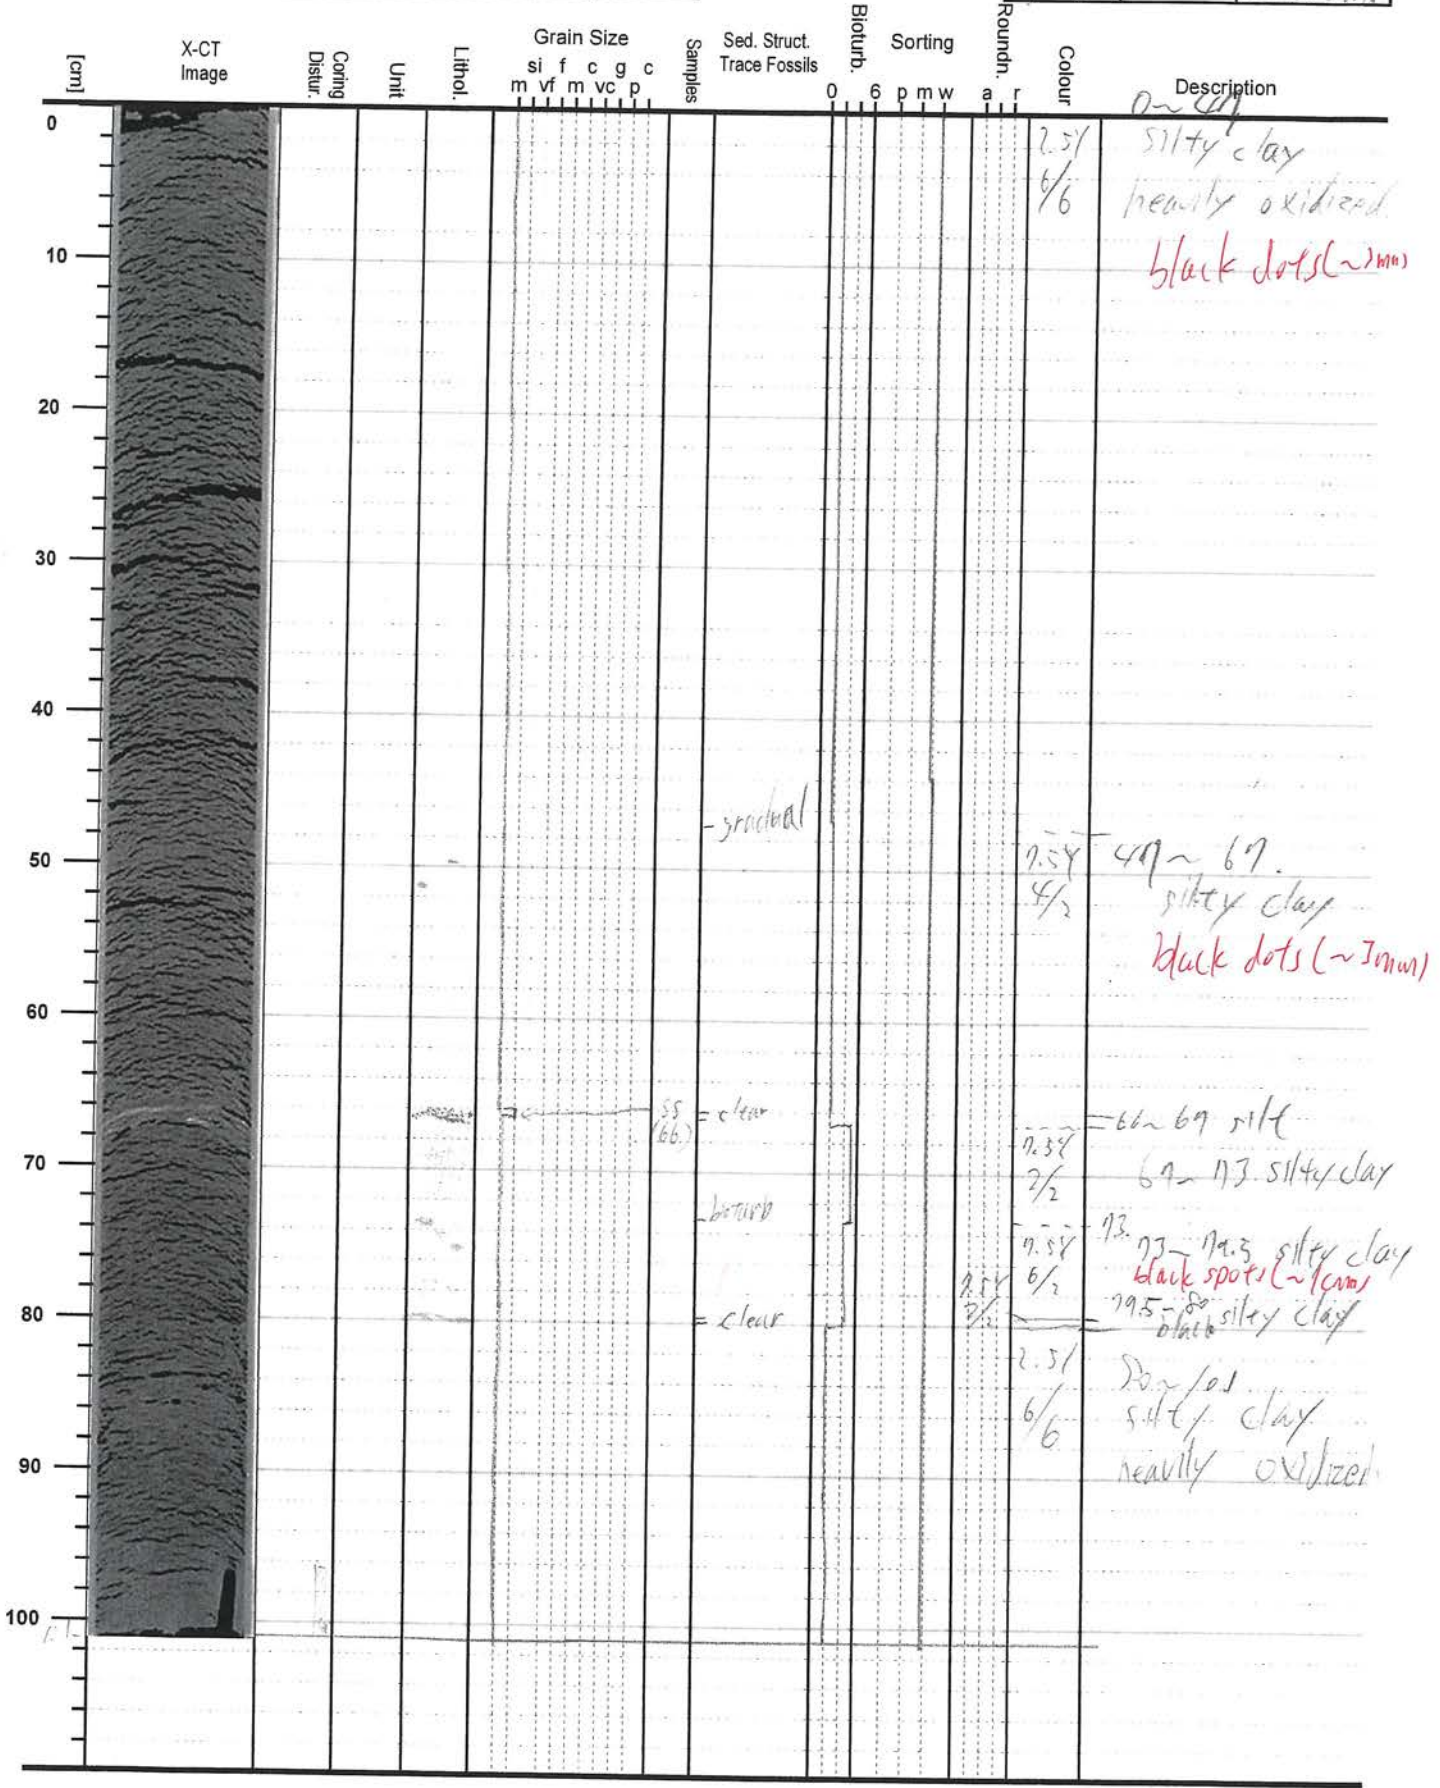 [cm]
X-CT
Image
Coring
Distur.
Unit
Lithol.
Grain Size
si f c g c
m vf m vc p
Samples
Sed. Struct.
Trace Fossils
Bioturb.
0 6
Sorting
p m w
Roundn.
a r
Colour
Description
0
10
20
30
40
50
60
70
80
90
100
silty clay
heavily oxidized
black dots
6/6
- gradual
7.5Y
4/2
47~67.
silty clay
black dots (~3mm)
SS
(66)
= clear
66~67 silt
7.5Y
67~73. silty clay
bioturb
73.
7.5Y
6/2
73~79.5 silty clay
black spots (~1cm)
= clear
79.5~80
black silty clay
2.5Y
6/6
80~101
silty clay
heavily oxidized